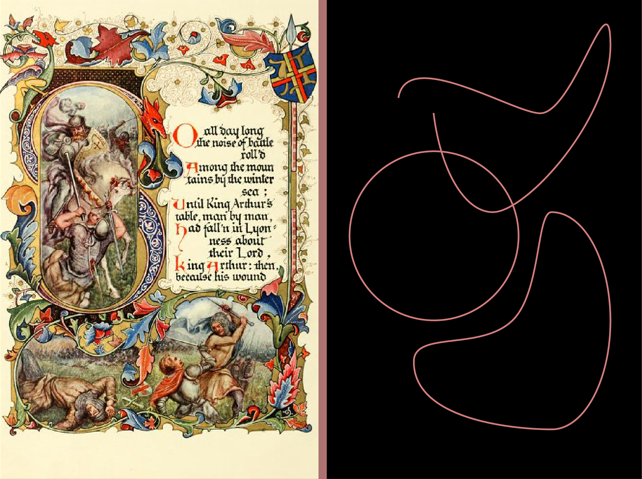 So all day long
the noise of battle
roll'd
Among the moun
tains by the winter
sea :
Until King Arthur's
table, man by man,
had fall'n in Lyon-
ness about
their Lord,
King Arthur : then,
because his wound